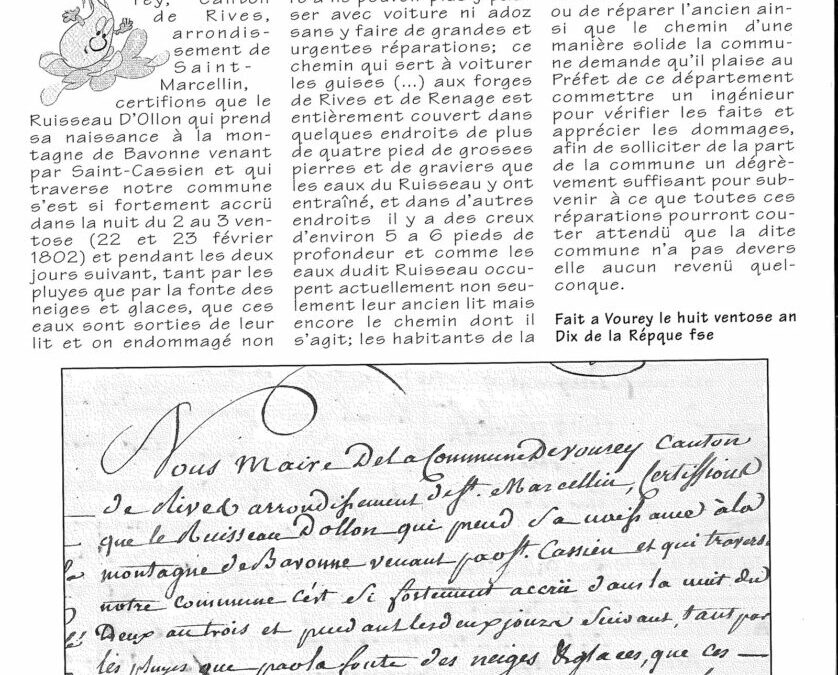 rey, Canton
de Rives,
arrondis-
sement de
Saint-
Marcellin,
certifions que le
Ruisseau D'Ollon qui prend
sa naissance à la mon-
tagne de Bavonne venant
par Saint-Cassien et qui
traverse notre commune
s'est si fortement accrü
dans la nuit du 2 au 3 ven-
tose (22 et 23 février
1802) et pendant les deux
jours suivant, tant par les
pluyes que par la fonte des
neiges et glaces, que ces
eaux sont sorties de leur
lit et on endommagé non
ser avec voiture ni adoz
sans y faire de grandes et
urgentes réparations; ce
chemin qui sert à voiturer
les guises (...) aux forges
de Rives et de Renage est
entièrement couvert dans
quelques endroits de plus
de quatre pied de grosses
pierres et de graviers que
les eaux du Ruisseau y ont
entraîné, et dans d'autres
endroits il y a des creux
d'environ 5 a 6 pieds de
profondeur et comme les
eaux dudit Ruisseau occu-
pent actuellement non seu-
lement leur ancien lit mais
encore le chemin dont il
s'agit; les habitants de la
ou de réparer l'ancien ain-
si que le chemin d'une
manière solide la commu-
ne demande qu'il plaise au
Préfet de ce département
commettre un ingénieur
pour vérifier les faits et
apprécier les dommages,
afin de solliciter de la part
de la commune un dégrè-
vement suffisant pour sub-
venir à ce que toutes ces
réparations pourront cou-
ter attendü que la dite
commune n'a pas devers
elle aucun revenü quel-
conque.
Fait a Vourey le huit ventose an
Dix de la Répque fse
Nous Maire De la Commune De vourey Canton
de Rives arrondissement de St. Marcellin, Certifions
que le Ruisseau Dollon qui prend sa naissance à la
montagne de Bavonne venant par St. Cassien et qui travers
notre commune c'est si fortement accrü dans la nuit du
Deux au trois et pendant les deux jours suivant, tant par
les pluyes que par la fonte des neiges & glaces, que ces